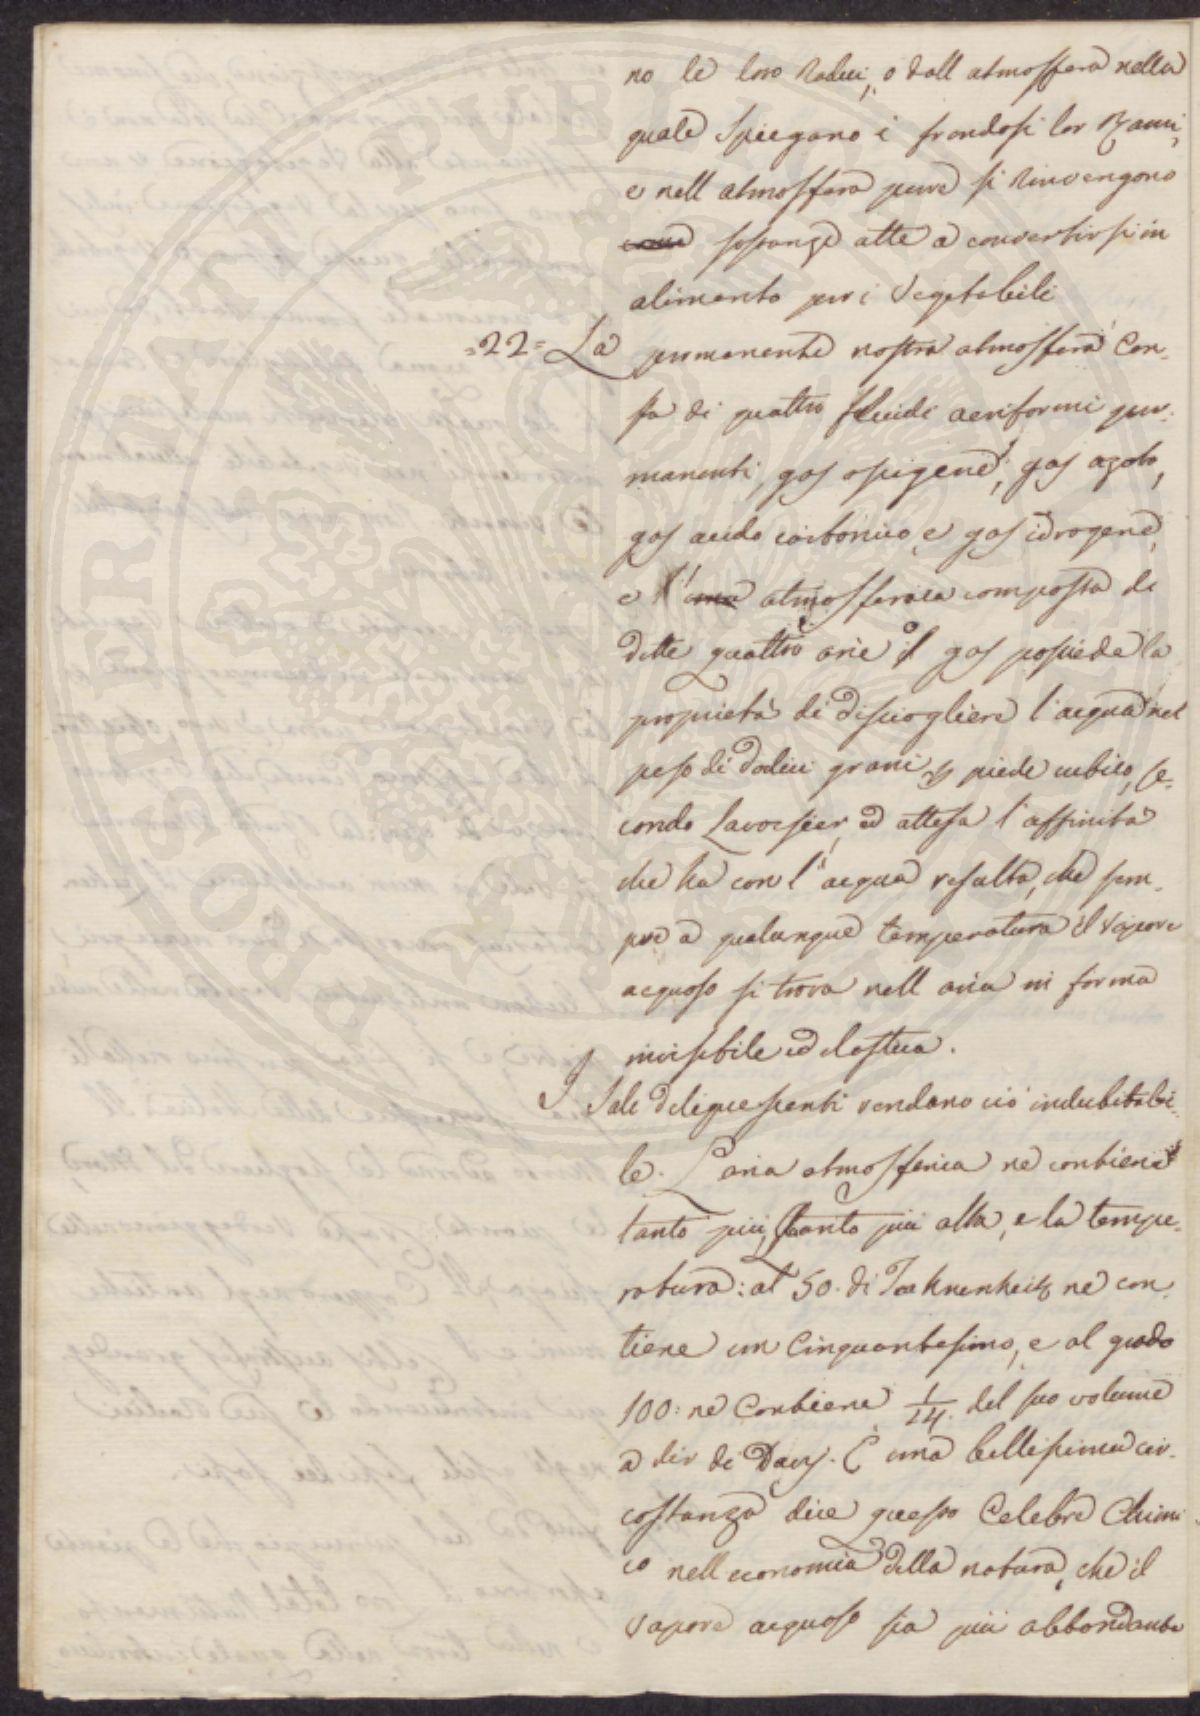 no le loro Radici, o dall atmosffera nella
quale Spiegano i frondosi lor Rami,
e nell atmosffera pure si Rinvengono
sostanze atte a convertirsi in
alimento per i Vegetabili
=22= La permanente nostra atmosffera Con-
sta di quattro fluidi aeriformi per-
manenti, gas ossigene, gas azoto,
gas acido carbonico, e gas idrogene,
e l' atmosferica composta di
dette quattro arie il gas possiede la
proprietà di disciogliere l'acqua nel
peso di dodici grani piede cubico, se-
condo Lavoesieer, ed attesa l'affinità
che ha con l'acqua resulta, che sem-
pre a qualunque temperatura il vapore
acquoso si trova nell aria in forma
invisibile ed elastica.
I Sali deliquescenti rendano ciò indubitabi-
le. L aria atmosferica ne contiene
tanto più, Quanto più alta, e la tempe-
ratura: al 50. di Farhnenheitz ne con-
tiene un Cinquantesimo, e al grado
100: ne Contiene 1/14. del suo volume
a dir di Davy. È una bellissima cir-
costanza dice questo Celebre Chimi
co nell economia della natura, che il
Vapore acquoso sia più abbondante
PROSPERITATI PUBLICAE